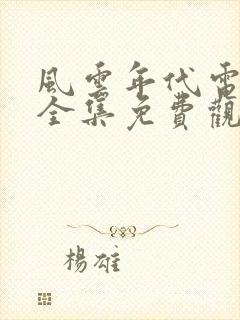 風雲年代電
全集免費觀
楊雄